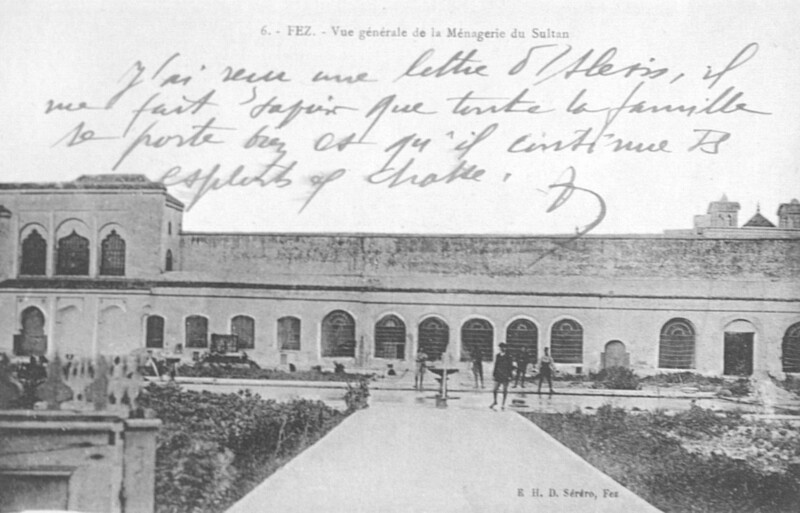 6. - FEZ. - Vue générale de la Ménagerie du Sultan
J'ai reçu une lettre d'Alexis, il
me fait savoir que toute la famille
se porte bien et qu'il continue
exploits de chasse.
E. H. D. Séréro, Fez